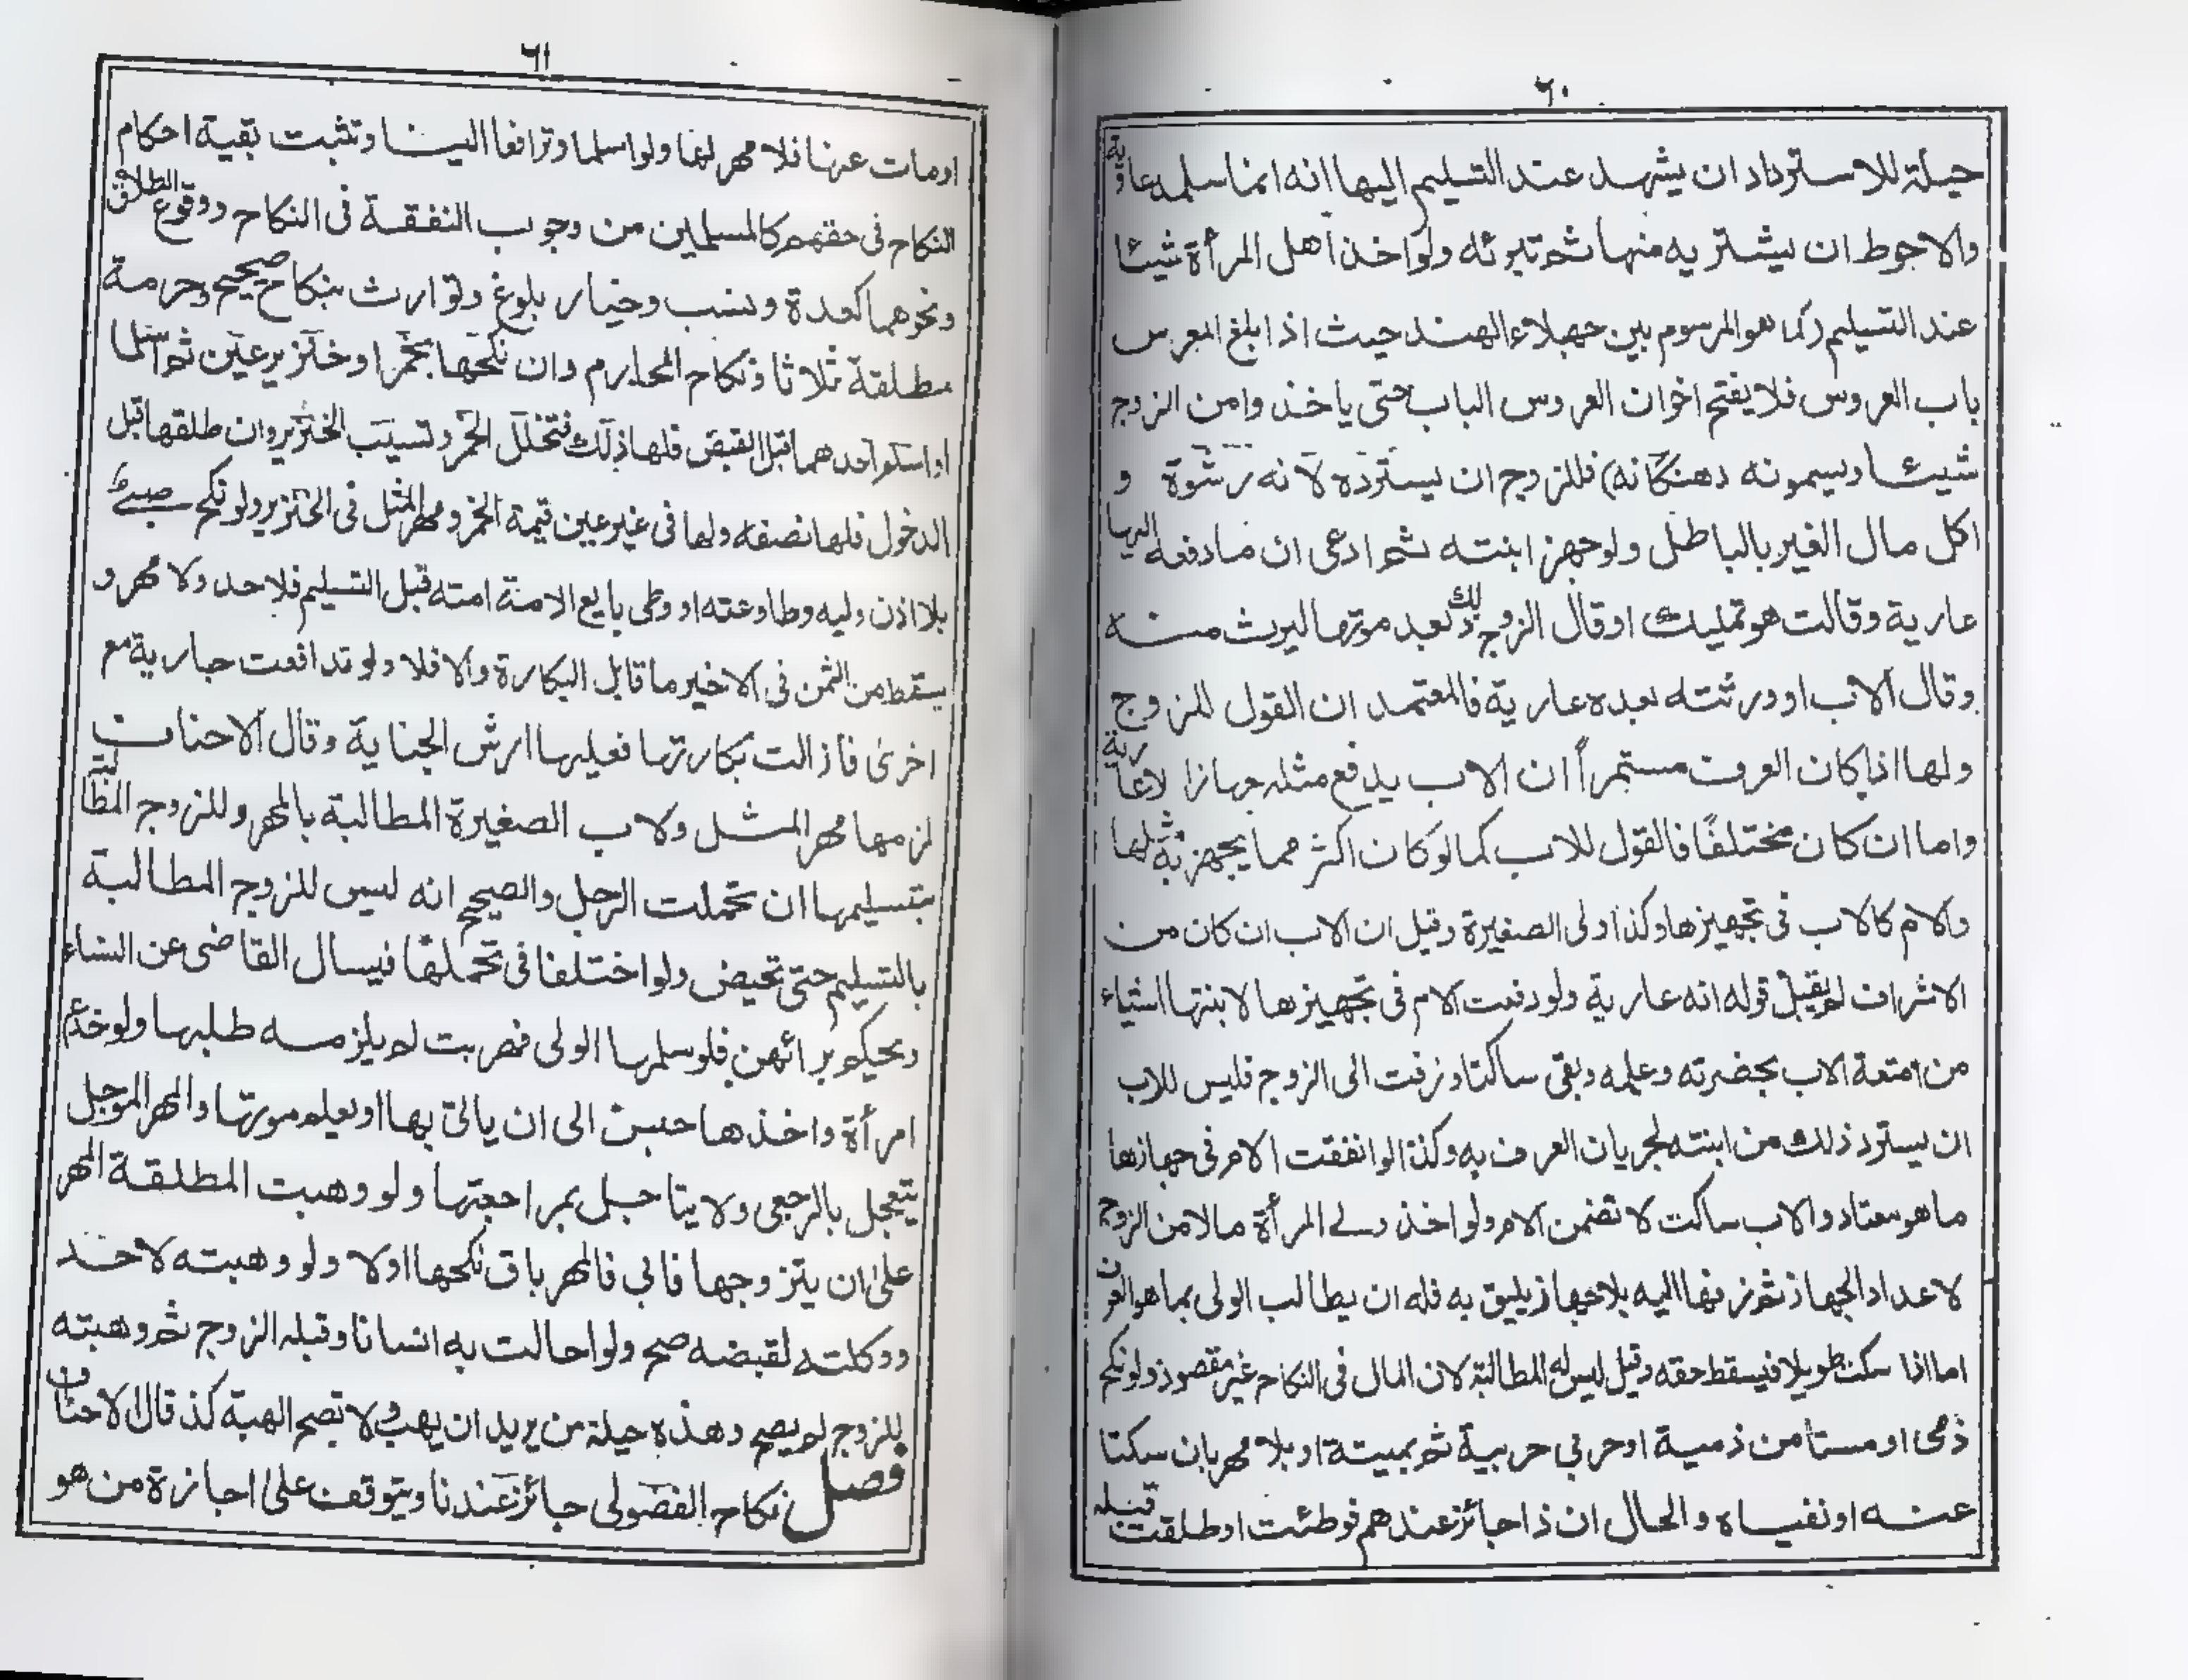 ٦٠
حيلة للاسترداد ان يشهد عند التسليم اليها انه انما سلمه عارية
والاحوط ان يشتريه منها ثم تبرئه ولو اخذ اهل المرأة شيئا
عند التسليم (كما هو المرسوم بين جهلاء الهند حيث اذا بلغ المعرس
باب العروس فلا يفتح اخوان العروس الباب حتى ياخذوا من الزوج
شيئا ويسمونه دهنگانه) فللزوج ان يسترده لانه رشوة و
اكل مال الغير بالباطل ولو جهز ابنته ثم ادعى ان ما دفعه اليها
عارية وقالت هو تمليك او قال الزوج ذلك بعد موتها ليرث منه
وقال الاب او ورثته بعده عارية فالمعتمد ان القول للزوج
ولها اذا كان العرف مستمرأ ان الاب يدفع مثله جهازا لاعارية
واما ان كان مختلفًا فالقول للاب كما لو كان اكثر مما يجهز به مثلها
والام كالاب فى تجهيزها وكذا ولى الصغيرة وقيل ان الاب ان كان من
الاشراف لم يقبل قوله انه عارية ولو دفعت الام فى تجهيزها لابنتها اشياء
من امتعة الاب بحضرته وعلمه وبقى ساكتا وزفت الى الزوج فليس للاب
ان يسترد ذلك من ابنته لجريان العرف به وكذا لو انفقت الام فى جهازها
ما هو معتاد والاب ساكت لا تضمن الام ولو اخذ ولے المرأة مالا من الزوج
لاعداد الجهاز ثم زفها اليه بلا جهاز يليق به فله ان يطالب الولى بما هو العرف
اما اذا سكت طويلا فيسقط حقه وقيل ليس له المطالبة لان المال فى النكاح غير مقصود ولو نكح
ذمى او مستامن ذمية او حربي حربية ثم بميتة او بلا مهر بان سكتا
عنه او نفياه والحال ان ذا جائز عندهم فوطئت او طلقت قبله
٦١
او مات عنها فلا مهر لها ولو اسلما وترافعا الينا وتثبت بقية احكام
النكاح فى حقهم كالمسلمين من وجوب النفقة فى النكاح ووقوع الطلاق
ونحوهما كعدة ونسب وخيار بلوغ وتوارث بنكاح صحيح وحرمة
مطلقة ثلاثا ونكاح المحارم وان نكحها بخمر او خنزير عين ثم اسلما
او اسلم احدهما قبل القبض فلها ذلك فتخلل الخمر وتسيب الخنزير وان طلقها قبل
الدخول فلها نصفه ولها فى غير عين قيمة الخمر ومهر المثل فى الخنزير ولو نكح صبے
بلا اذن وليه وطاوعته او وطى بايع الامة امته قبل التسليم فلا حد ولا مهر و
يسقط من الثمن فى الاخير ما قابل البكارة والا فلا ولو تدافعت جارية مع
اخرى فازالت بكارتها فعليها ارش الجناية وقال الاحناف
لزمها مهر المثل ولاب الصغيرة المطالبة بالمهر وللزوج المطالبة
بتسليمها ان تحملت الرجل والصحيح انه ليس للزوج المطالبة
بالتسليم حتى تحيض ولو اختلفا فى تحملها فيسال القاضى عن النساء
ويحكم برائهن فلو سلمها الولى فهربت لم يلزمه طلبها ولو خدع
امرأة واخذها حبس الى ان ياتى بها او يعلم موتها والمهر الموجل
يتعجل بالرجعى ولا يتاجل بمراجعتها ولو وهبت المطلقة المهر
على ان يتزوجها فابى فالمهر باق نكحها اولا ولو وهبته لاحد
ووكلته لقبضه صح ولو احالت به انسانا وقبله الزوج ثم وهبته
للزوج لم يصح وهذه حيلة من يريد ان يهب ولا تصح الهبة كذ قال الاحناف
فصل نكاح الفضولى جائز عندنا ويتوقف على اجازة من هو